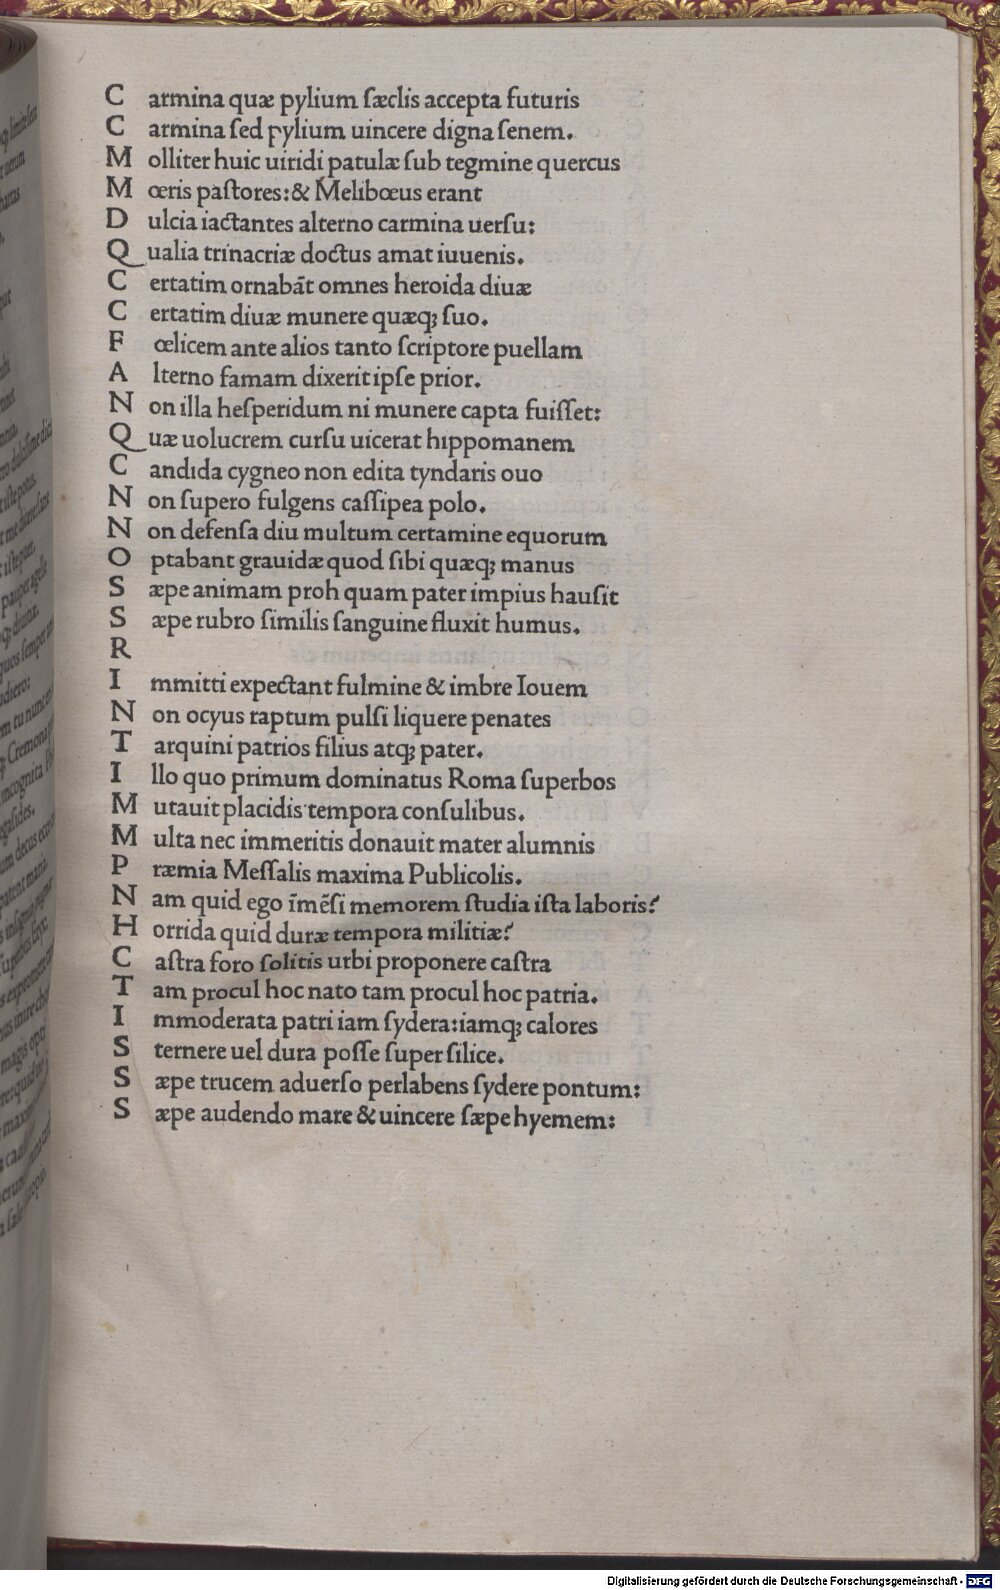 C armina quæ pylium ſæclis accepta futuris
C armina ſed pylium uincere digna ſenem.
M olliter huic uiridi patulæ ſub tegmine quercus
M œris paſtores:& Melibœus erant
D ulcia iactantes alterno carmina uerſu:
Q ualia trinacriæ doctus amat iuuenis.
C ertatim ornabāt omnes heroida diuæ
C ertatim diuæ munere quæqꝫ ſuo.
F œlicem ante alios tanto ſcriptore puellam
A lterno famam dixerit ipſe prior.
N on illa heſperidum ni munere capta fuiſſet:
Q uæ uolucrem curſu uicerat hippomanem
C andida cygneo non edita tyndaris ouo
N on ſupero fulgens caſſipea polo.
N on defenſa diu multum certamine equorum
O ptabant grauidæ quod ſibi quæqꝫ manus
S æpe animam proh quam pater impius hauſit
S æpe rubro ſimilis ſanguine fluxit humus.
R
I mmitti expectant fulmine & imbre Iouem
N on ocyus raptum pulſi liquere penates
T arquini patrios filius atqꝫ pater.
I llo quo primum dominatus Roma ſuperbos
M utauit placidis tempora conſulibus.
M ulta nec immeritis donauit mater alumnis
P ræmia Meſſalis maxima Publicolis.
N am quid ego īmēſi memorem ſtudia iſta laboris?
H orrida quid duræ tempora militiæ?
C aſtra foro ſolitis urbi proponere caſtra
T am procul hoc nato tam procul hoc patria.
I mmoderata patri iam ſydera:iamqꝫ calores
S ternere uel dura poſſe ſuper ſilice.
S æpe trucem aduerſo perlabens ſydere pontum:
S æpe audendo mare & uincere ſæpe hyemem:
Digitalisierung gefördert durch die Deutsche Forschungsgemeinschaft - DFG